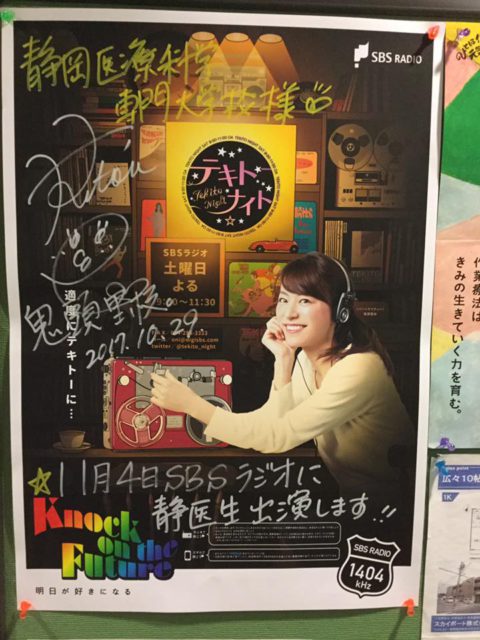 静岡医療科学
専門大学校様
SBS RADIO
テキトーナイト
Tekito Night
SBSラジオ
土曜日
よる
9:00〜11:30
twitter @tekito_night
適度にテキトーに…
鬼頭里枝
2017.10.09
☆11月4日SBSラジオに
静医生出演します!!
Knock
on the
Future
明日が好きになる
SBS RADIO
1404
kHz
作業療法は
きみの生きていく力を育む。
広々10帖
1K
スカイポート株式